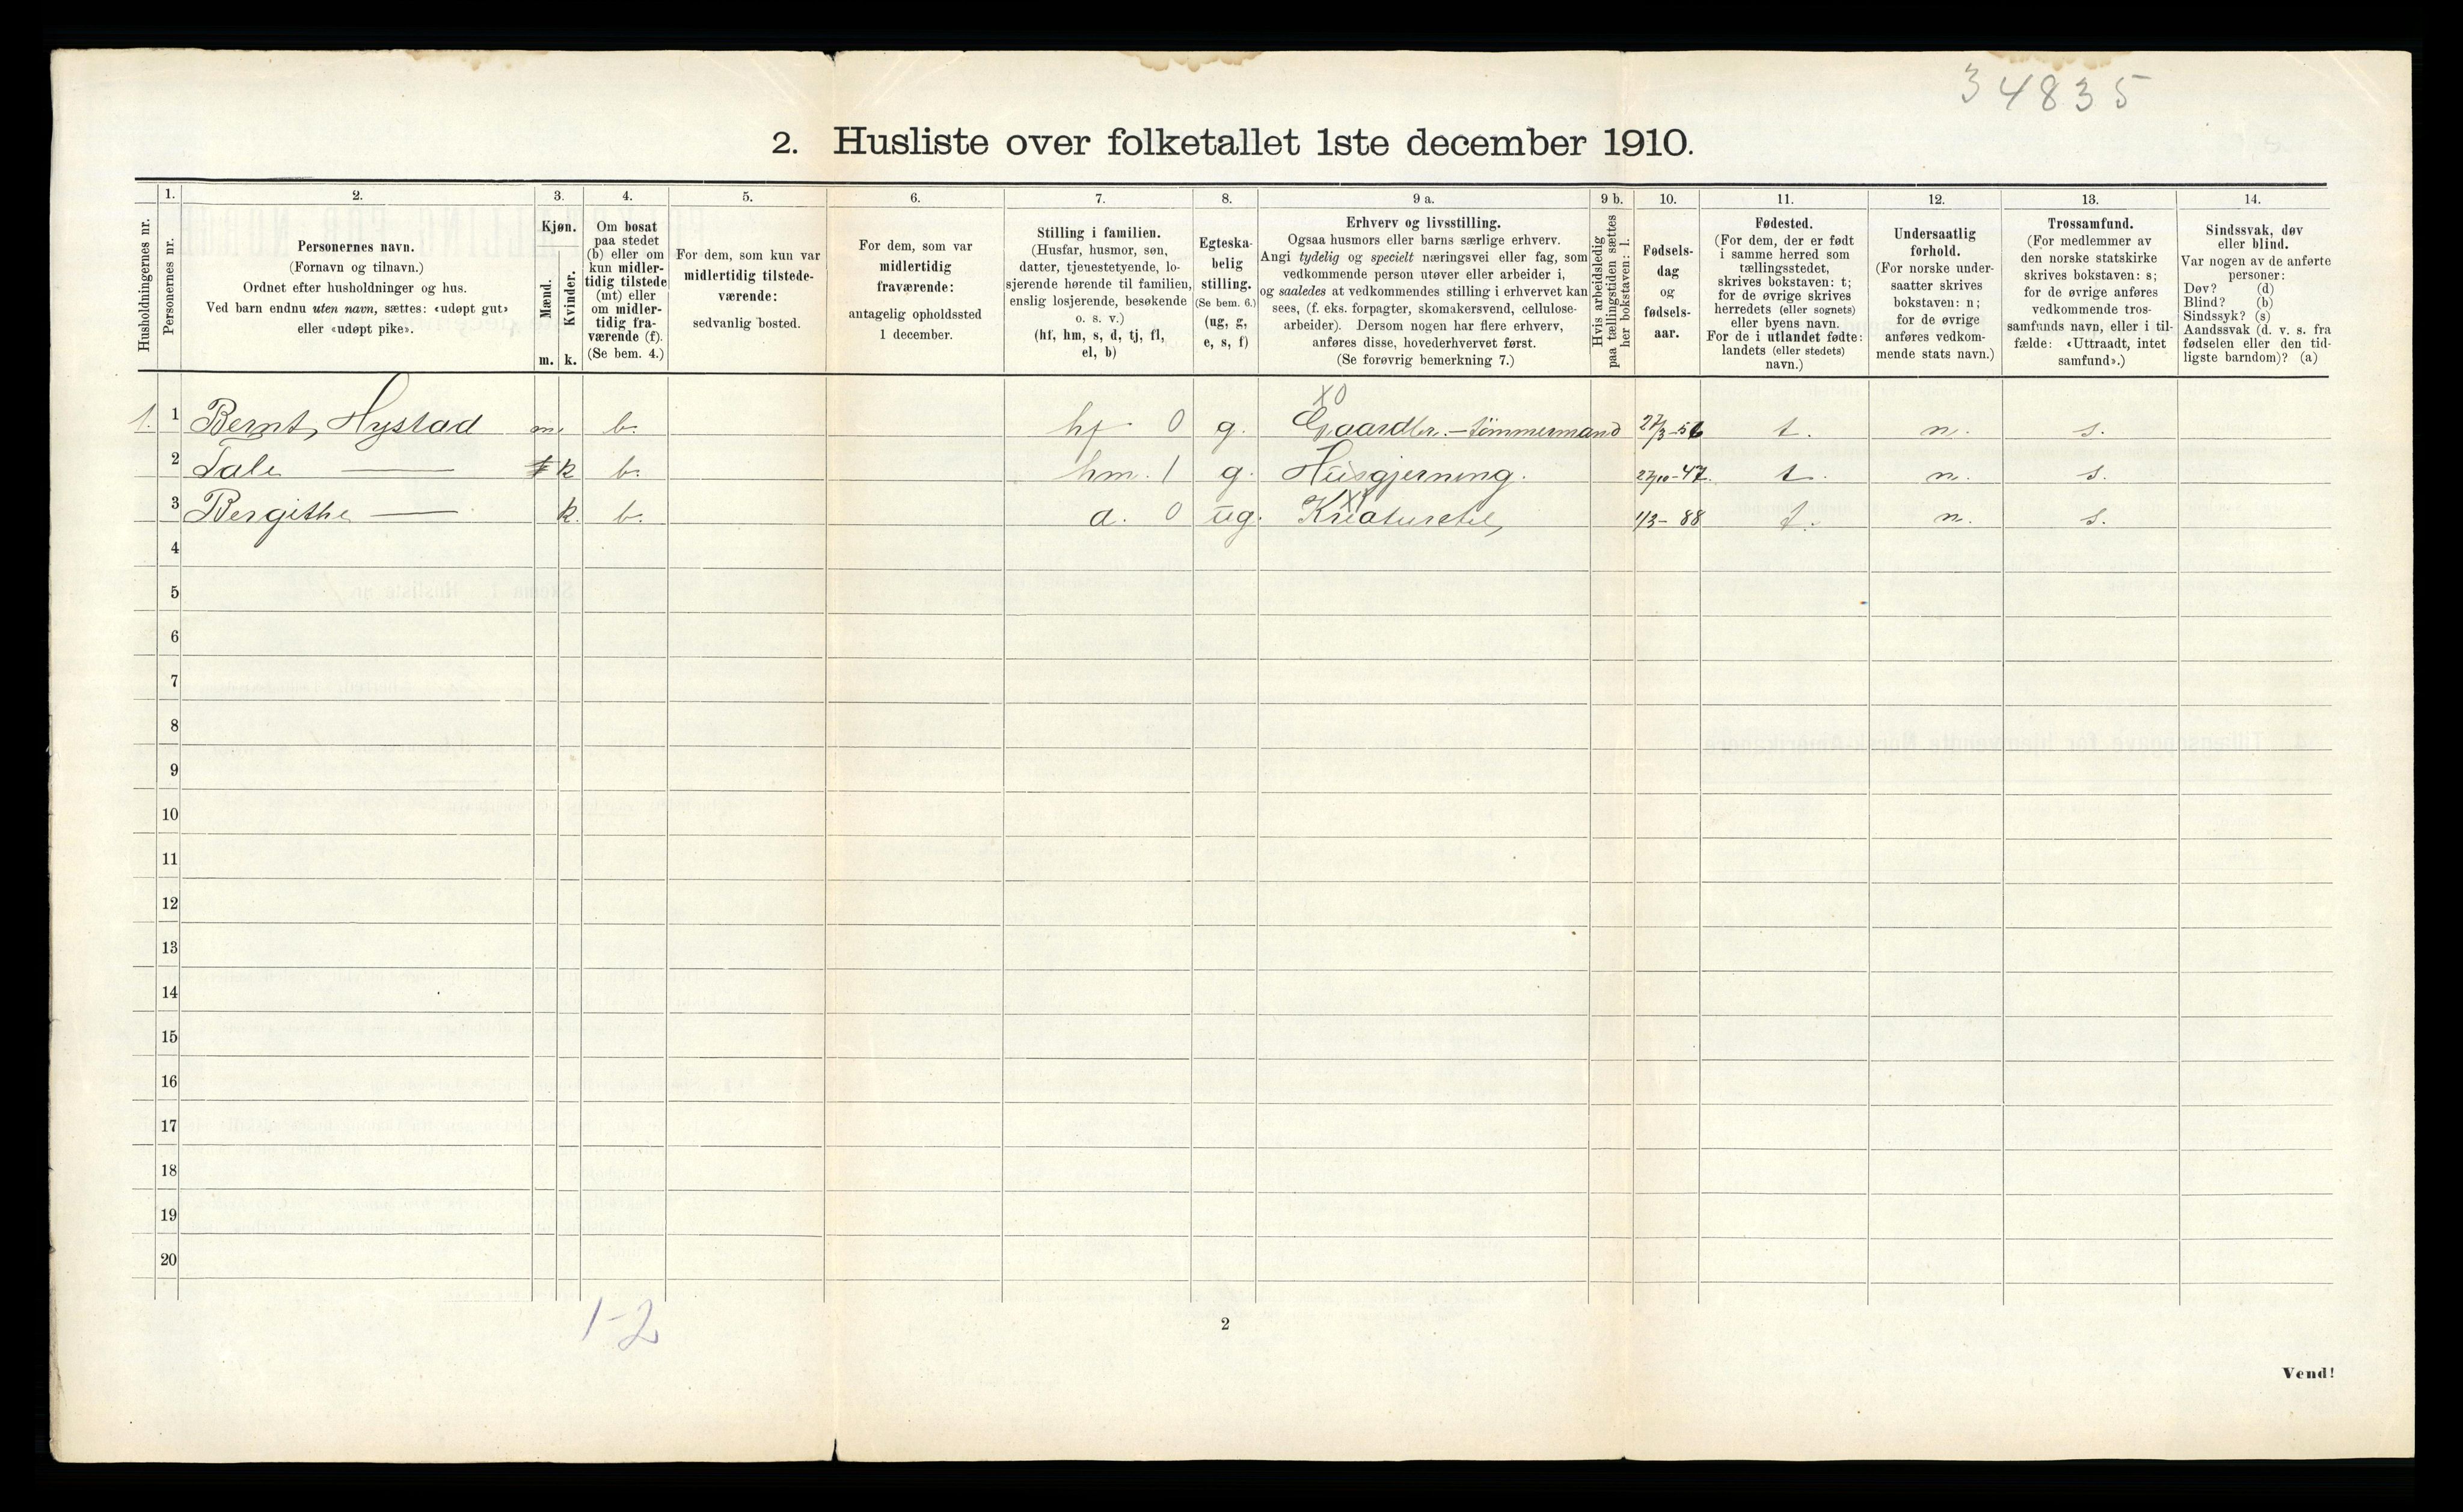 34835
2. Husliste over folketallet 1ste december 1910.
Husholdningernes nr.
1.
Personernes nr.
2.
Personernes navn.
(Fornavn og tilnavn.)
Ordnet efter husholdninger og hus.
Ved barn endnu uten navn, sættes: «udøpt gut»
eller «udøpt pike».
3.
Kjøn.
Mænd.
Kvinder.
m. k.
4.
Om bosat
paa stedet
(b) eller om
kun midler-
tidig tilstede
(mt) eller
om midler-
tidig fra-
værende (f).
(Se bem. 4.)
5.
For dem, som kun var
midlertidig tilstede-
værende:
sedvanlig bosted.
6.
For dem, som var
midlertidig
fraværende:
antagelig opholdssted
1 december.
7.
Stilling i familien.
(Husfar, husmor, søn,
datter, tjenestetyende, lo-
sjerende hørende til familien,
enslig losjerende, besøkende
o. s. v.)
(hf, hm, s, d, tj, fl,
el, b)
8.
Egteska-
belig
stilling.
(Se bem. 6.)
(ug, g,
e, s, f)
9 a.
Erhverv og livsstilling.
Ogsaa husmors eller barns særlige erhverv.
Angi tydelig og specielt næringsvei eller fag, som
vedkommende person utøver eller arbeider i,
og saaledes at vedkommendes stilling i erhvervet kan
sees, (f. eks. forpagter, skomakersvend, cellulose-
arbeider). Dersom nogen har flere erhverv,
anføres disse, hovederhvervet først.
(Se forøvrig bemerkning 7.)
9 b.
Hvis arbeidsledig
paa tællingstiden sættes
her bokstaven: l.
10.
Fødsels-
dag
og
fødsels-
aar.
11.
Fødested.
(For dem, der er født
i samme herred som
tællingsstedet,
skrives bokstaven: t;
for de øvrige skrives
herredets (eller sognets)
eller byens navn.
For de i utlandet fødte:
landets (eller stedets)
navn.)
12.
Undersaatlig
forhold.
(For norske under-
saatter skrives
bokstaven: n;
for de øvrige
anføres vedkom-
mende stats navn.)
13.
Trossamfund.
(For medlemmer av
den norske statskirke
skrives bokstaven: s;
for de øvrige anføres
vedkommende tros-
samfunds navn, eller i til-
fælde: «Uttraadt, intet
samfund».)
14.
Sindssvak, døv
eller blind.
Var nogen av de anførte
personer:
Døv? (d)
Blind? (b)
Sindssyk? (s)
Aandssvak (d. v. s. fra
fødselen eller den tid-
ligste barndom)? (a)
X0
1. 1 Bernt, Hystad m. b. hf 0 g. Gaardbr. - tömmermand 27/3-56 t. n. s.
2 Tale — k b. hm. 1 g. Husgjerning. 27/10-47. t. n. s.
3 Bergithe — k. b. d. 0 ug. Kreaturstel, 1/3-88 t. n. s.
4
5
6
7
8
9
10
11
12
13
14
15
16
17
18
19
20
1-2
2
Vend!